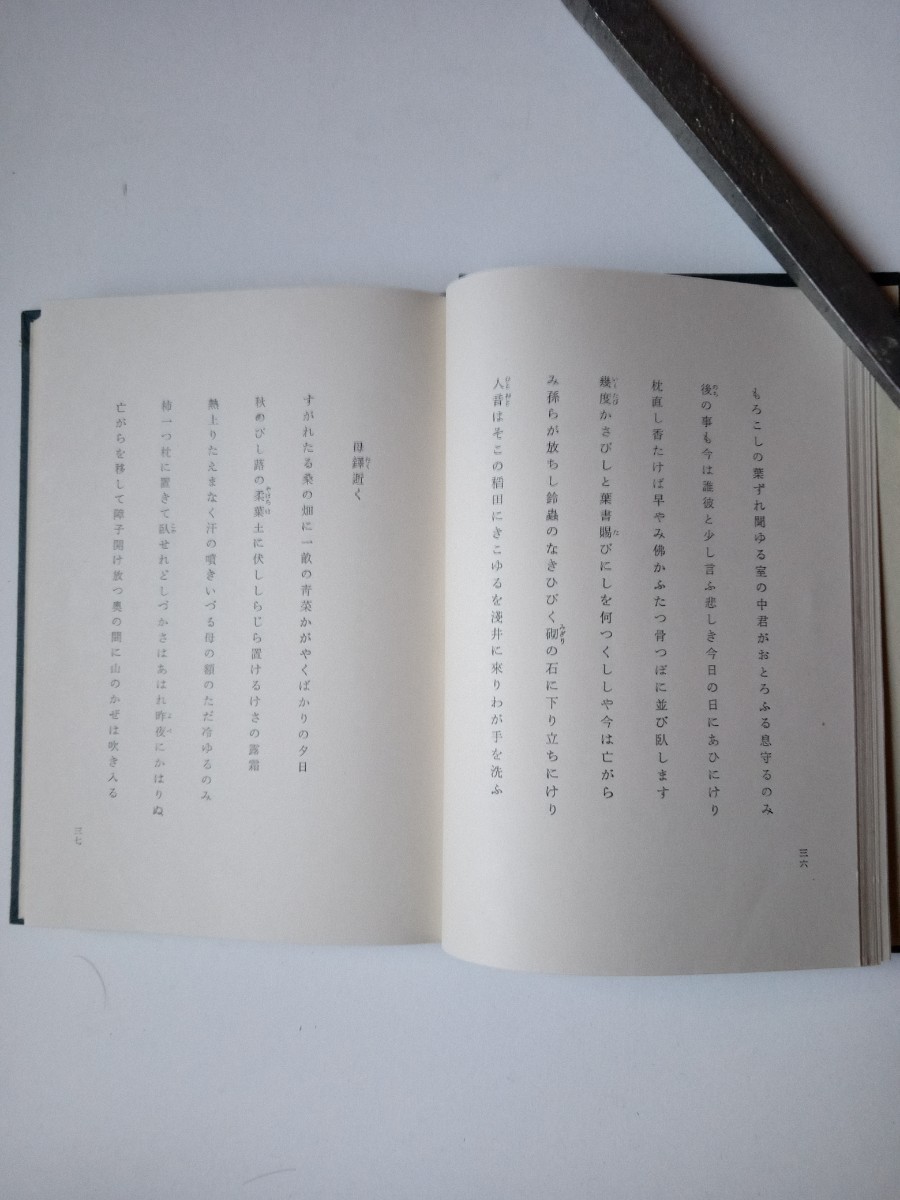 もろこしの葉ずれ聞ゆる室の中君がおとろふる息守るのみ
後の事も今は誰彼と少し言ふ悲しき今日の日にあひにけり
枕直し香たけば早やみ佛かふたつ骨つぼに並び臥します
幾度かさびしと葉書賜びにしを何つくししや今は亡がら
み孫らが放ちし鈴蟲のなきひびく砌の石に下り立ちにけり
人音はそこの稻田にきこゆるを淺井に來りわが手を洗ふ
三六
母 近く
すがれたる桑の畑に一畝の靑菜かがやくばかりの夕日
秋のびし蕗の柔葉土に伏ししらじら置けるけさの露霜
熱上りたえまなく汗の噴きいづる母の額のただ冷ゆるのみ
柿一つ枕に置きて臥せれどしづかさはあはれ昨夜にかはりぬ
亡がらを移して障子開け放つ奧の間に山のかぜは吹き入る
三七